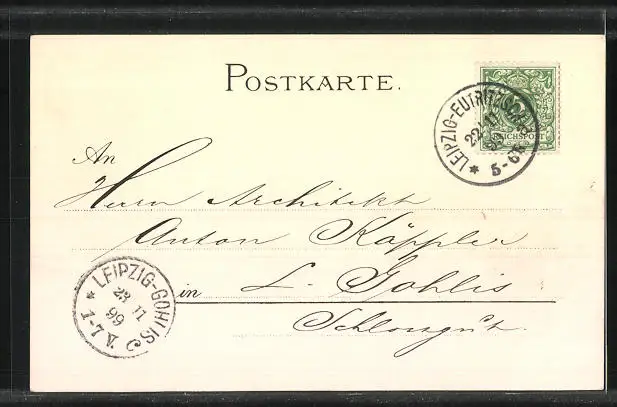 POSTKARTE.
LEIPZIG-EUTRITZSCH
22 11
99
5-6N
REICHSPOST
An
Herrn Architekt
Anton Käppler
in L. Gohlis
Schlossgut.
LEIPZIG-GOHLIS
23 11
99
1-7 V.
C